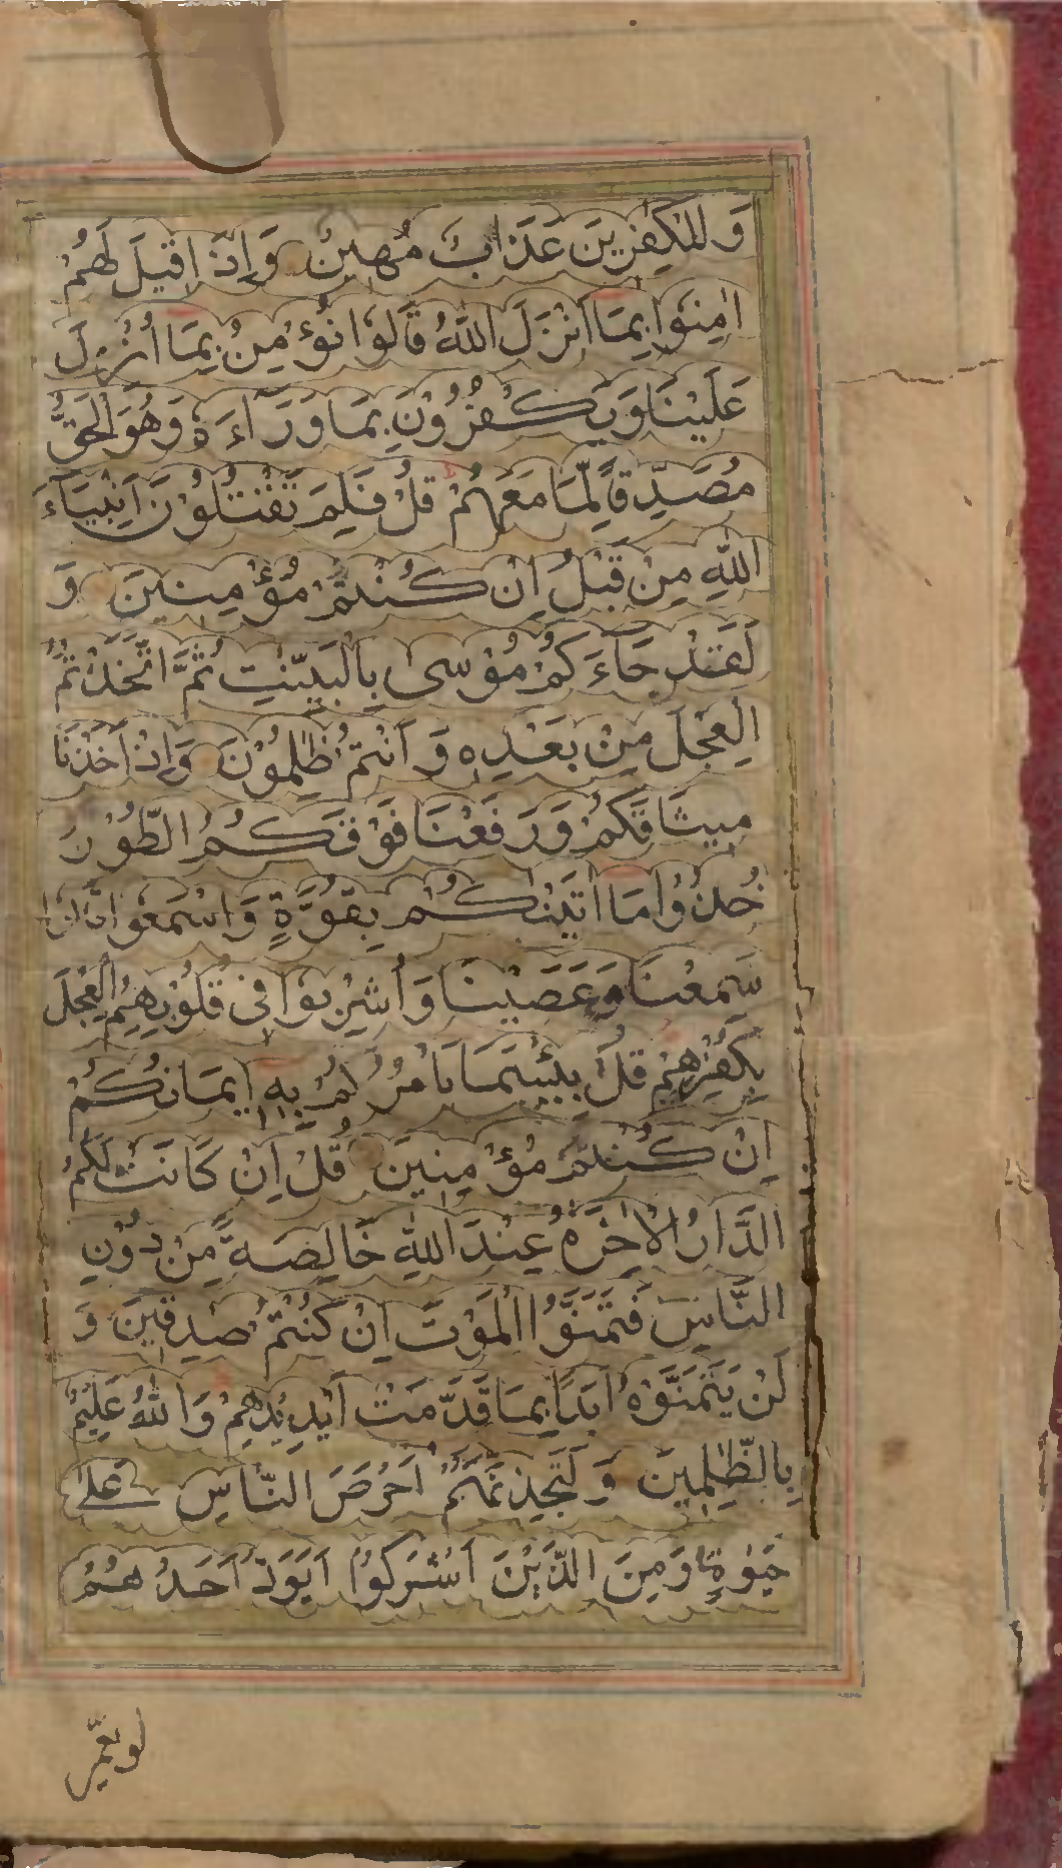 وَلِلْكٰفِرِينَ عَذَابٌ مُهِينٌ وَإِذَا قِيلَ لَهُمْ
اٰمِنُوا بِمَا أَنْزَلَ اللّٰهُ قَالُوا نُؤْمِنُ بِمَا أُنْزِلَ
عَلَيْنَا وَيَكْفُرُوْنَ بِمَا وَرَآءَهُ وَهُوَ الْحَقُّ
مُصَدِّقًا لِّمَا مَعَهُمْ قُلْ فَلِمَ تَقْتُلُوْنَ اَنْبِيَآءَ
اللّٰهِ مِنْ قَبْلُ اِنْ كُنْتُمْ مُؤْمِنِينَ وَ
لَقَدْ جَآءَكُمْ مُوْسٰى بِالْبَيِّنٰتِ ثُمَّ اتَّخَذْتُمُ
الْعِجْلَ مِنْ بَعْدِهِ وَ اَنْتُمْ ظٰلِمُوْنَ وَإِذْ اَخَذْنَا
مِيثَاقَكُمْ وَرَفَعْنَا فَوْقَكُمُ الطُّوْرَ
خُذُوْا مَا اٰتَيْنٰكُمْ بِقُوَّةٍ وَاسْمَعُوا قَالُوا
سَمِعْنَا وَعَصَيْنَا وَاُشْرِبُوا فِى قُلُوْبِهِمُ الْعِجْلَ
بِكُفْرِهِمْ قُلْ بِئْسَمَا يَاْمُرُكُمْ بِهِ اِيمَانُكُمْ
اِنْ كُنْتُمْ مُؤْمِنِينَ قُلْ اِنْ كَانَتْ لَكُمُ
الدَّارُ الْاٰخِرَةُ عِنْدَ اللّٰهِ خَالِصَةً مِّنْ دُوْنِ
النَّاسِ فَتَمَنَّوُا الْمَوْتَ اِنْ كُنْتُمْ صٰدِقِينَ وَ
لَنْ يَتَمَنَّوْهُ اَبَدًا بِمَا قَدَّمَتْ اَيْدِيْهِمْ وَاللّٰهُ عَلِيْمٌ
بِالظّٰلِمِينَ وَلَتَجِدَنَّهُمْ اَحْرَصَ النَّاسِ عَلٰى
حَيٰوةٍ وَمِنَ الَّذِيْنَ اَشْرَكُوْا يَوَدُّ اَحَدُهُمْ
لو يعمر